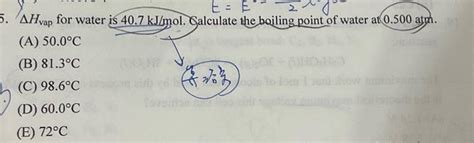 E = E° -
2
5. ΔHvap for water is 40.7 kJ/mol. Calculate the boiling point of water at 0.500 atm.
(A) 50.0°C
(B) 81.3°C
(C) 98.6°C
(D) 60.0°C
(E) 72°C